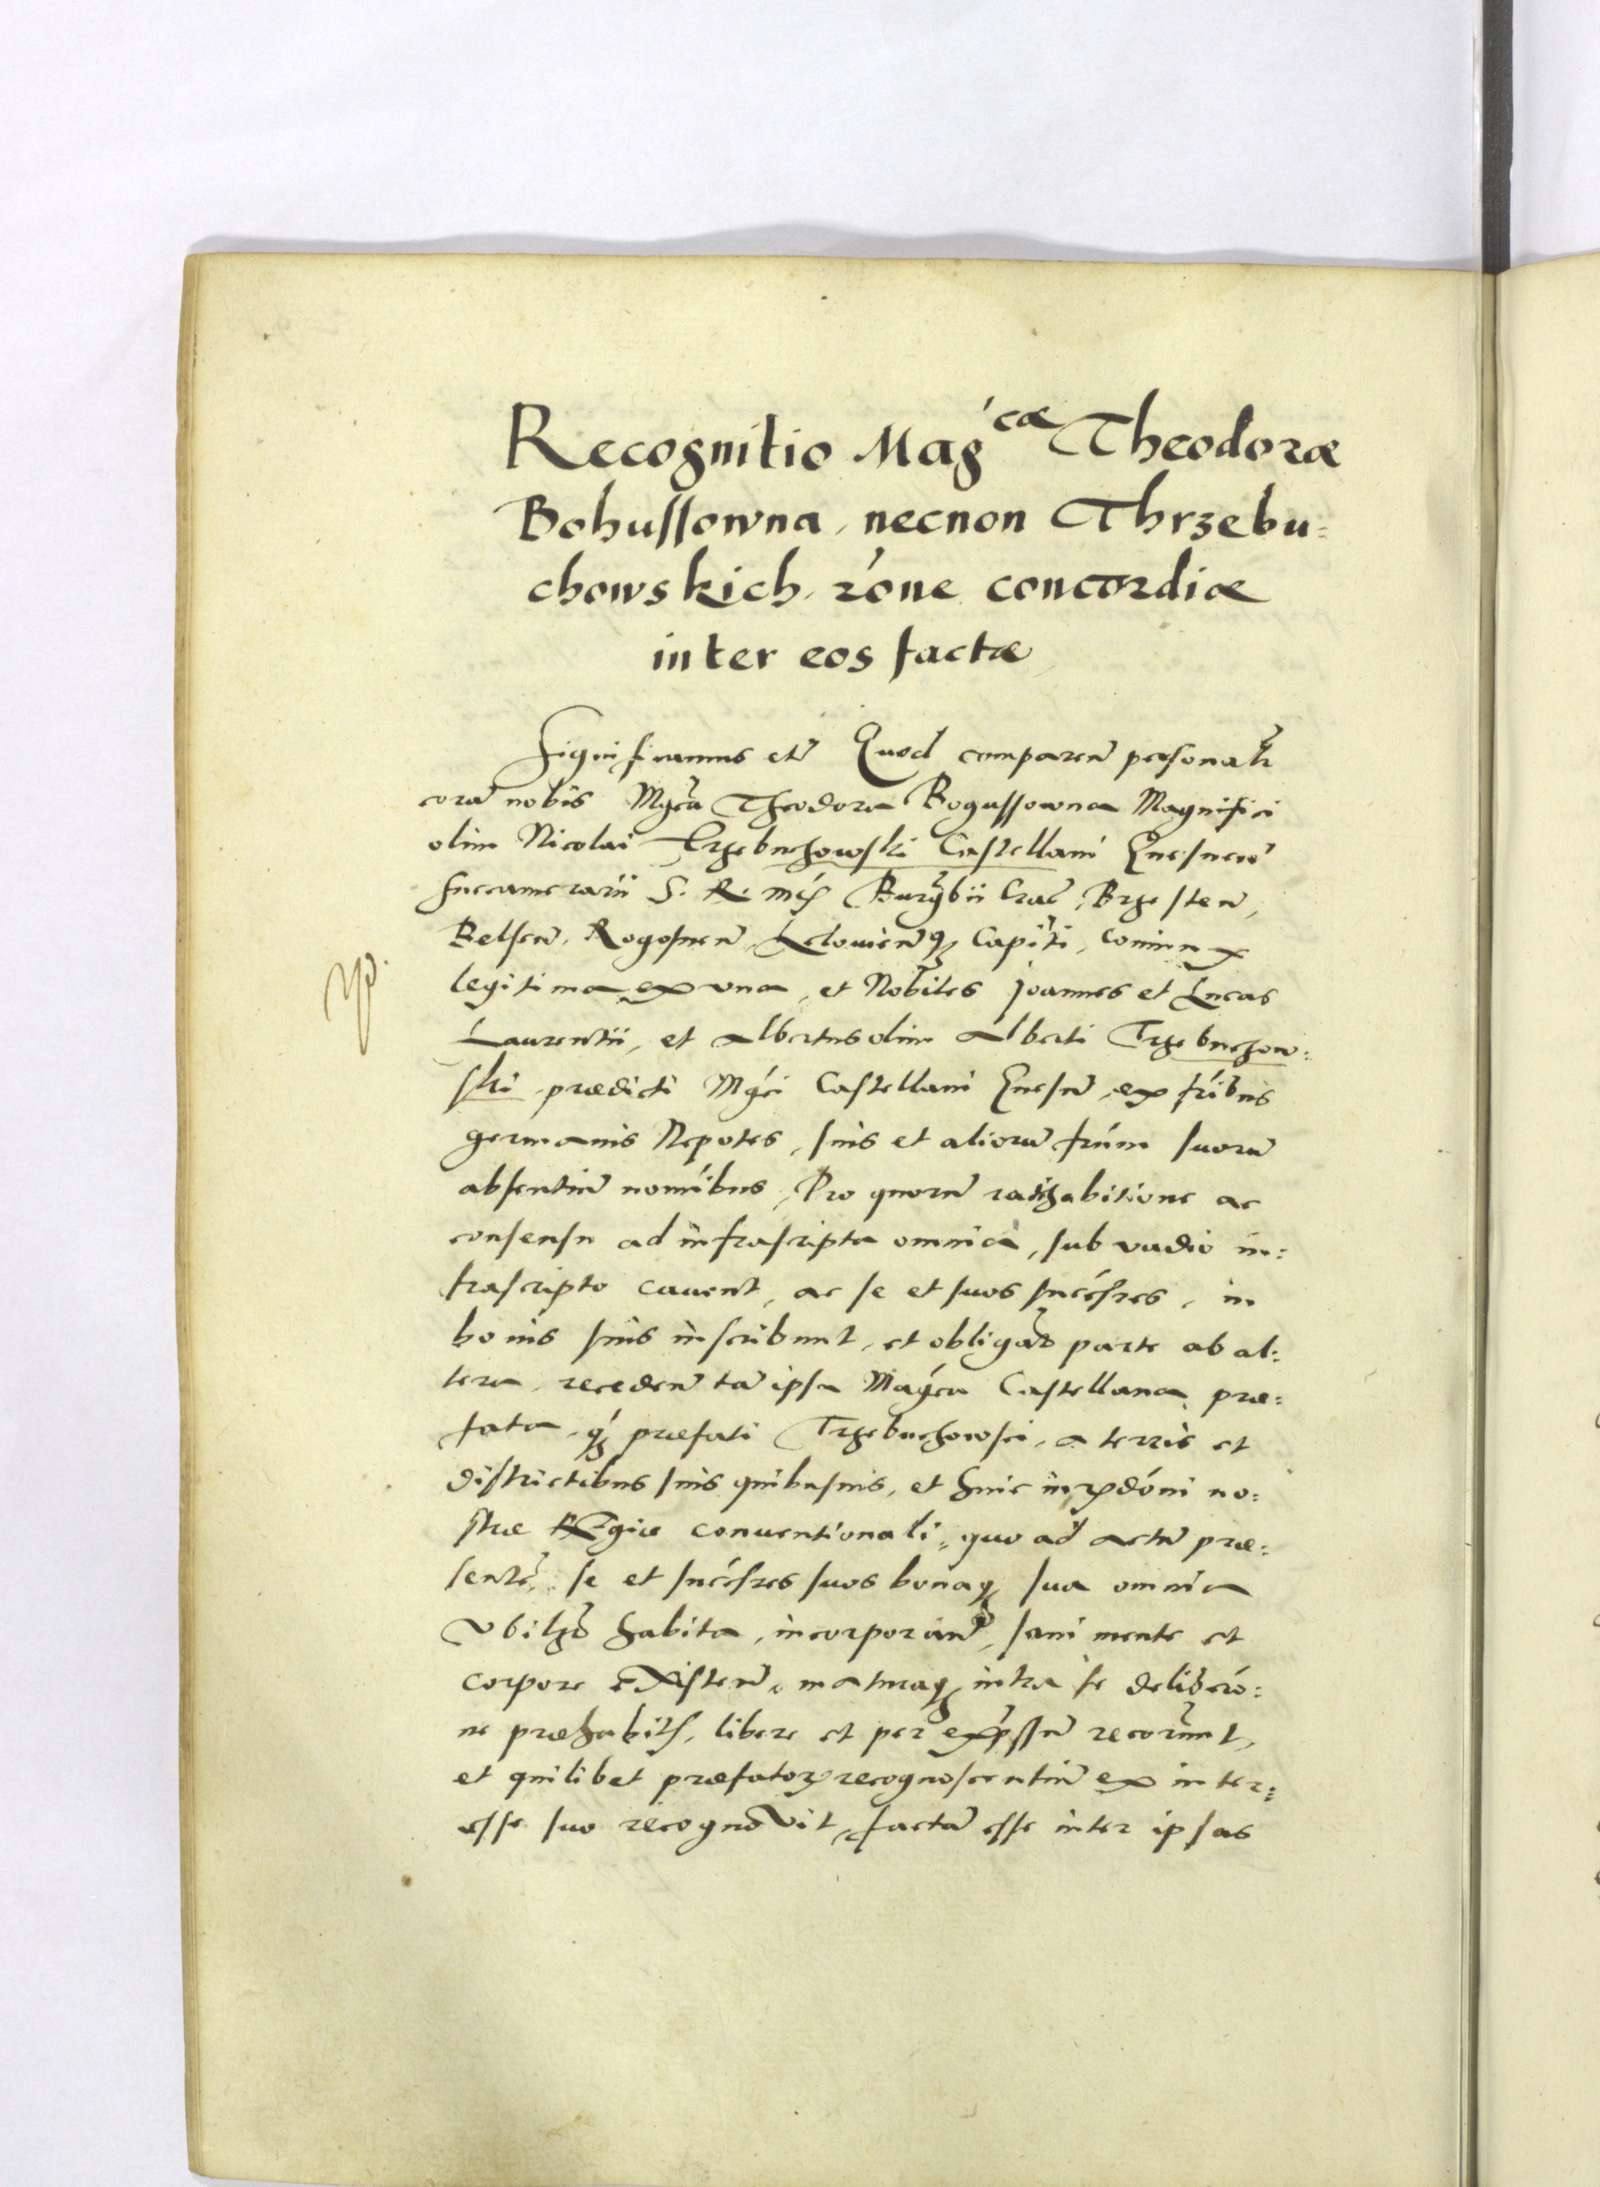 Recognitio Mag^cæ Theodoræ
Bohussowna, necnon Thrzebu=
chowskich, róne concordiæ
inter eos factæ
Significamus etc̃ Quod comparen̄ personalr̃
corā nobis Mgcā Theodora Bogussowna Magnifici
olim Nicolai Trzebuchowski Castellani Gnesneñ
Succamerarii S. R. Mtis Burgrbii Crac̄, Brzesten̄,
Belsen̄, Rogosnen̄, Lelouien̄q₃ Capiti, coniunx
legitima ex una, et Nobiles Joannes et Lucas
Laurentii, et Albertus olim Alberti Trzebuchow=
ski prædicti Mgci Castellani Gnesn̄, ex frībus
germanis Nepotes, suis et aliorū frūm suorū
absentiū nomībus, Pro quorū ratihabitione ac
consensu ad infrascripta omnia, sub vadio in=
frascripto cauent, ac se et suos succésres, in
bonis suis inscribunt, et obligāt parte ab al=
tera, receden̄ tā ipsa Magca Castellana præ=
fata, q₃ præfati Trzebuchowsci, a terris et
districtibus suis quibusuis, et huic iurzdóni no=
stræ Regiæ conuentionali, quo ad actū præ=
sentē, se et succésres suos bonaq₃ sua omnia
vbilz habita, incorporan̄, sani mente et
corpore existen̄, maturaq₃ intra se deliberó=
ne præhabita, libere et per expssum recorunt,
et quilibet præfatorꝝ recognoscentiū ex inter=
esse suo recognovit, factā esse inter ipsas